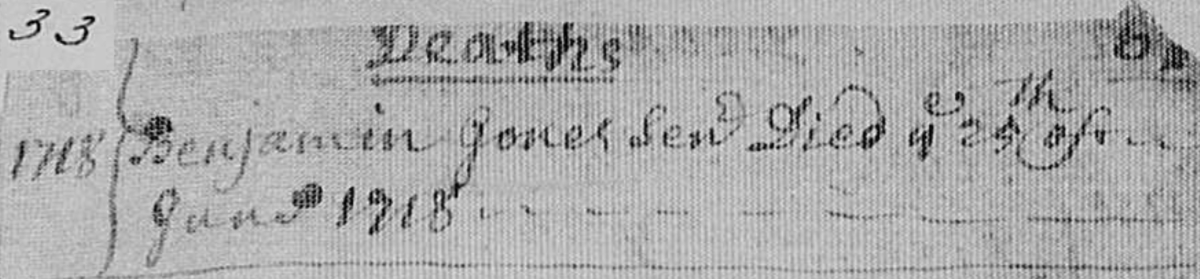 33
Deaths
1718 Benjamin Jones Senr Died ye 25th of
June 1718